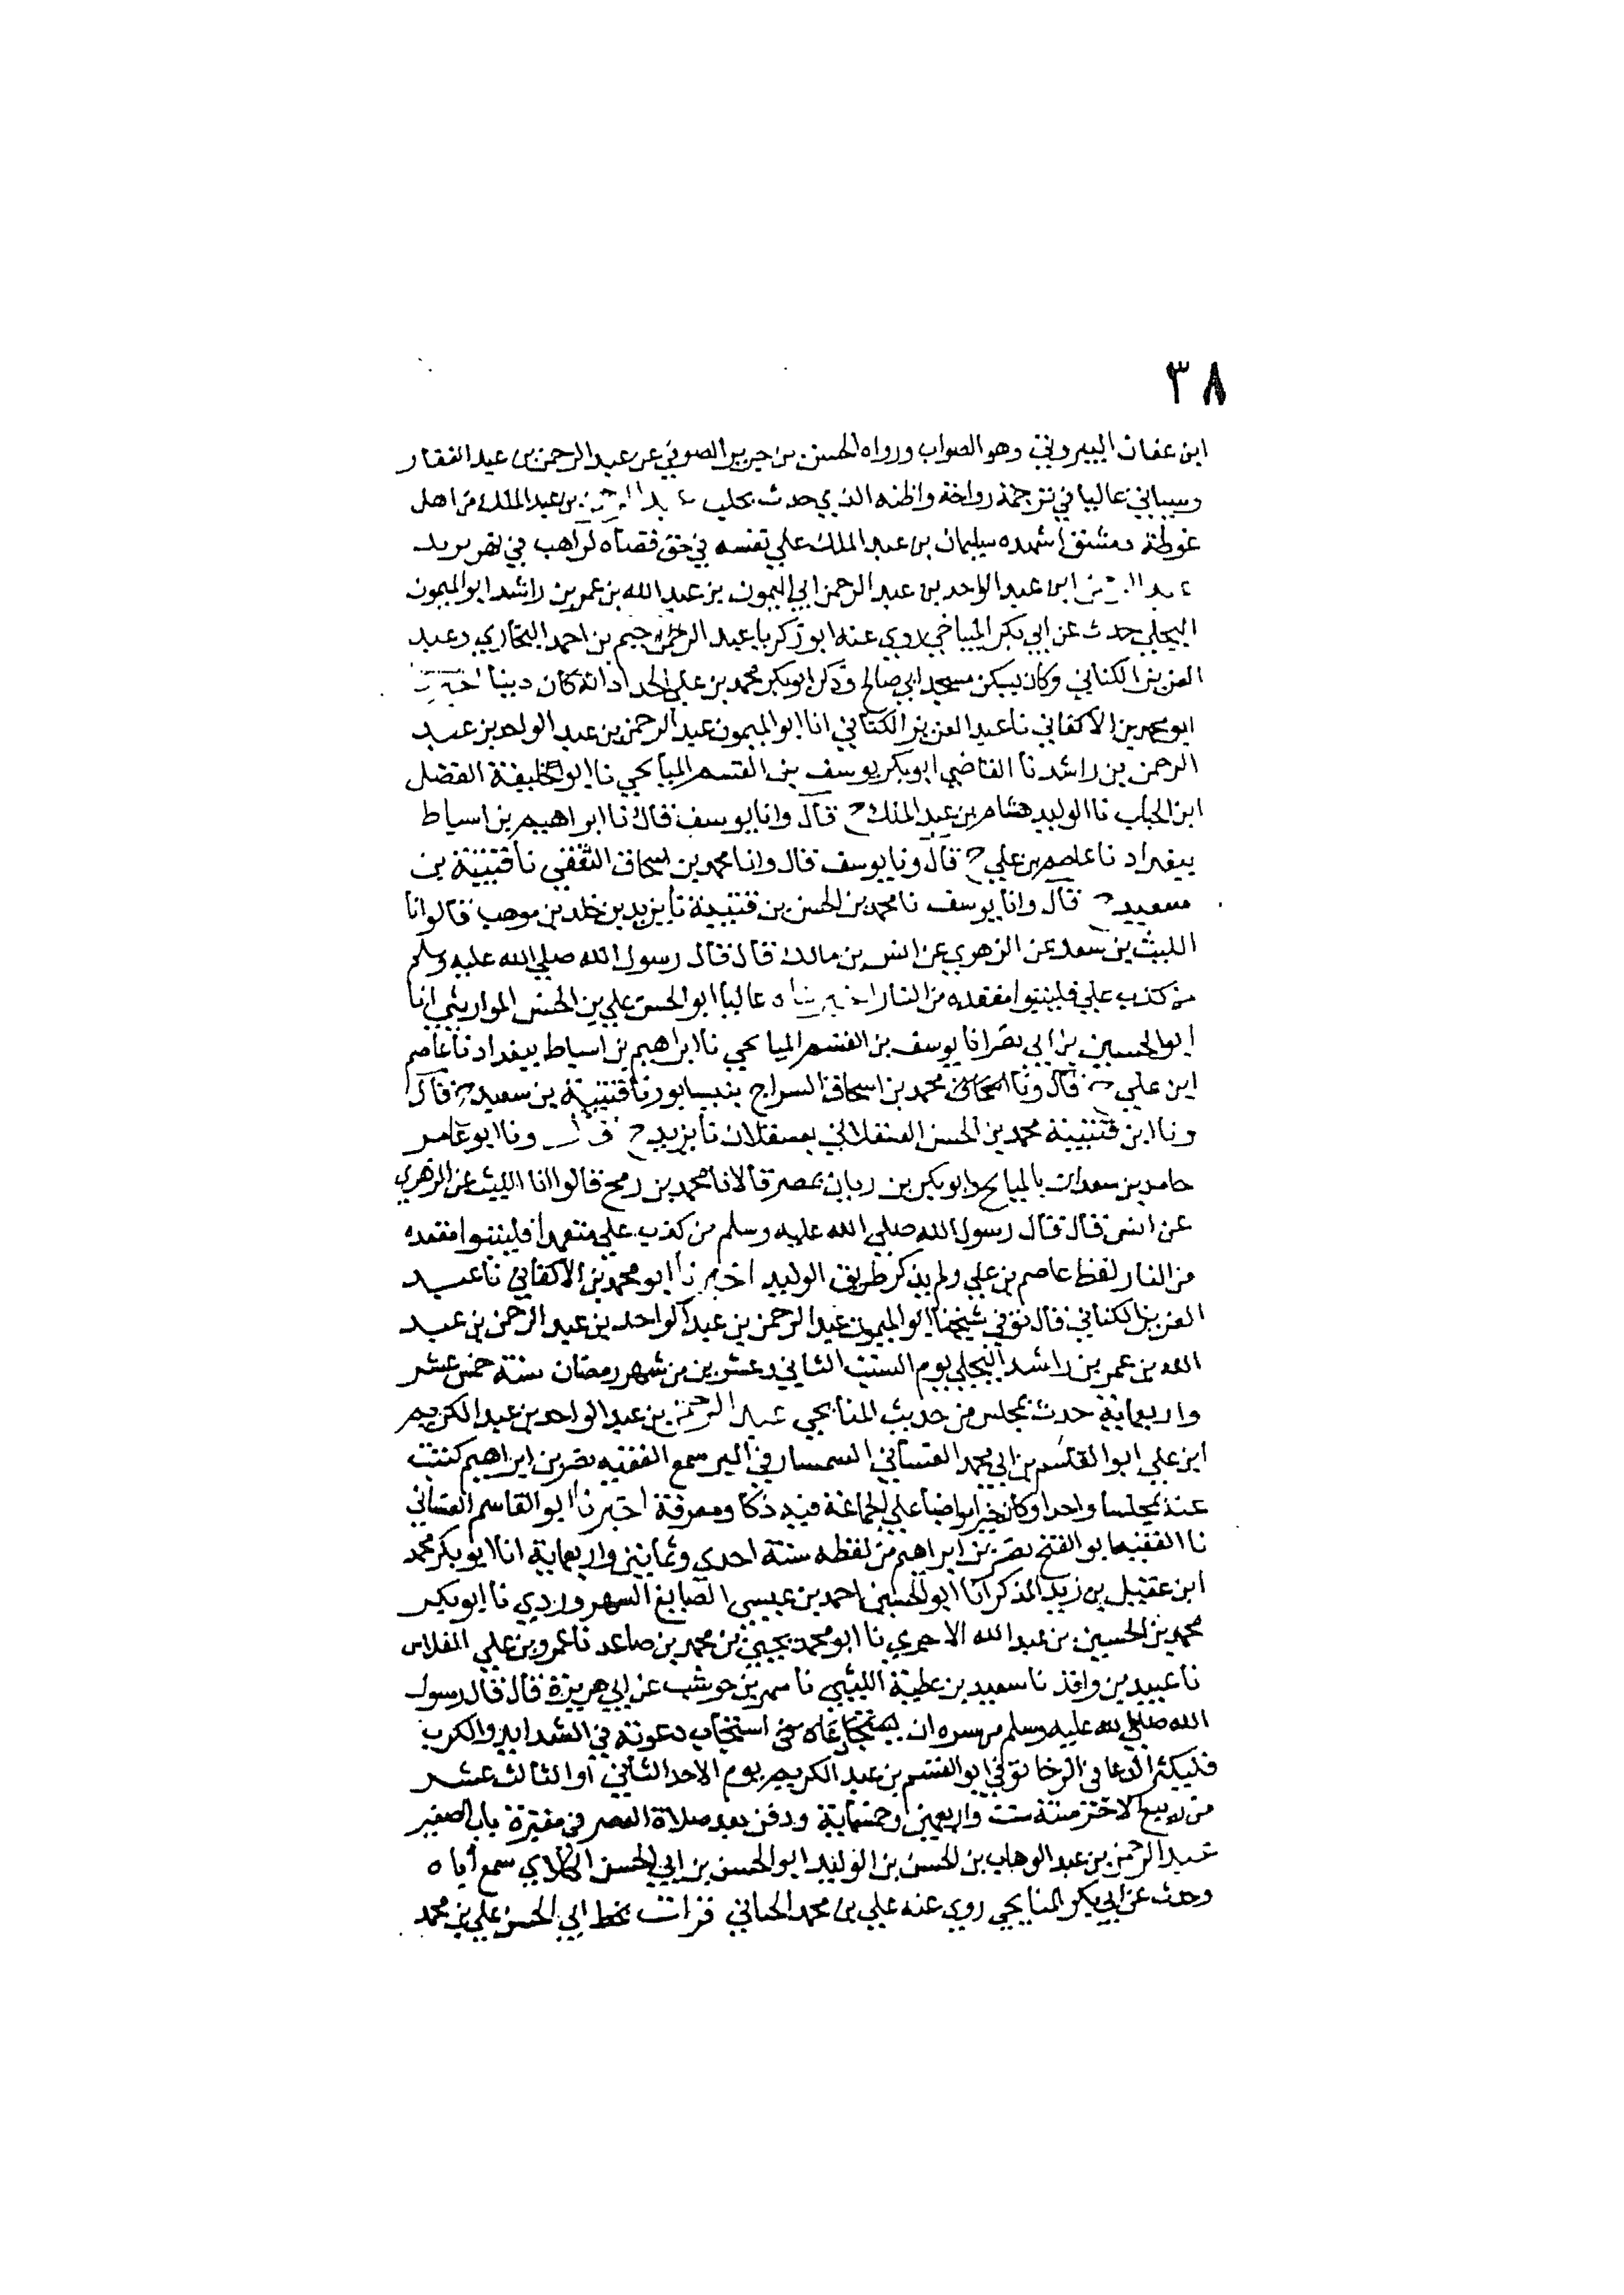 ٣٨
ابن عفان البيروتي وهو الصواب ورواه الحسن بن جرير الصوفي عن عبد الرحمن بن عبد الغفار
وسياتي عاليا في ترجمة رواحة واظنه الذي حدث بحلب عبد الرحمن بن عبد الملك من اهل
غوطة دمشق اشهده سليمان بن عبد الملك علي نفسه في حق قضاه لراهب في نهر يزيد
عبد الرحمن ابن عبد الواحد بن عبد الرحمن ابي الميمون بن عبد الله بن عمر بن راشد ابو الميمون
البجلي حدث عن ابي بكر الميانجي روي عنه ابو زكريا عبد الرحيم بن احمد البخاري وعبد
العزيز الكتاني وكان يسكن مسجد ابي صالح وذكر ابو بكر محمد بن علي الحداد انه كان دينا اخبرنا
ابو محمد بن الاكفاني نا عبد العزيز الكتاني انا ابو الميمون عبد الرحمن بن عبد الواحد بن عبد
الرحمن بن راشد نا القاضي ابو بكر يوسف بن القسم الميانجي نا ابو خليفة الفضل
ابن الحباب نا ابو الوليد هشام بن عبد الملك ح قال وانا يوسف قال نا ابراهيم بن اسباط
ببغداد نا عاصم بن علي ح قال ونا يوسف قال وانا محمد بن اسحاق الثقفي نا قتيبة بن
سعيد ح قال وانا يوسف نا محمد بن الحسن بن قتيبة نا يزيد بن خلد بن موهب قالوا نا
الليث بن سعد عن الزهري عن انس بن مالك قال قال رسول الله صلي الله عليه وسلم
من كذب علي فليتبوا مقعده من النار اخبرناه عاليا ابو الحسن علي بن الحسن الموازيني انا
ابو الحسين بن ابي نصر انا يوسف بن القسم الميانجي نا ابراهيم بن اسباط ببغداد نا عاصم
ابن علي ح قال ونا اسحاق محمد بن اسحاق السراج بنيسابور نا قتيبة بن سعيد ح قال
ونا ابن قتيبة محمد بن الحسن العسقلاني بعسقلان نا يزيد ح قال ونا ابو عامر
حامد بن سعدان بالميانج وابو بكر بن ريان بمصر قالا نا محمد بن رمح قالوا انا الليث عن الزهري
عن انس قال قال رسول الله صلي الله عليه وسلم من كذب علي متعمدا فليتبوا مقعده
من النار لفظ عاصم بن علي ولم يذكر طريق الوليد اخبرنا ابو محمد بن الاكفاني نا عبد
العزيز الكتاني قال توفي شيخنا ابو الميمون عبد الرحمن بن عبد الواحد بن عبد الرحمن بن عبد
الله بن عمر بن راشد البجلي يوم السبت الثاني وعشرين من شهر رمضان سنة خمس عشر
واربعماية حدث بمجلس من حديث الميانجي عبد الرحمن بن عبد الواحد بن عبد الكريم
ابن علي ابو القاسم بن ابي محمد الغساني السمسار في البر سمع الفقيه نصر بن ابراهيم كتبت
عنه مجلسا واحدا وكان خيرا مواضبا علي الجماعة فيه ذكا ومعرفة اخبرنا ابو القاسم الغساني
نا الفقيه ابو الفتح نصر بن ابراهيم من لفظه سنة احدي وثمانين واربعماية انا ابو بكر محمد
ابن عقيل بن زيد المذكر انا ابو الحسين احمد بن عيسي الصايغ السهروردي نا ابو بكر
محمد بن الحسين بن عبد الله الاجري نا ابو محمد يحيي بن محمد بن صاعد نا عمرو بن علي الفلاس
نا عبيد بن واقد نا سعيد بن عطية الليثي نا شهر بن حوشب عن ابي هريرة قال قال رسول
الله صلي الله عليه وسلم من سره ان تستجاب دعوته في الشدايد والكرب
فليكثر الدعا في الرخا توفي ابو القسم بن عبد الكريم يوم الاحد الثاني او الثالث عشر
من ربيع الاخر سنة ست واربعين وخمسماية ودفن بعد صلاة العصر في مقبرة باب الصغير
عبد الرحمن بن عبد الوهاب بن الحسن بن الوليد ابو الحسن بن ابي الحسن الكلابي سمع اباه
وحدث عن ابي بكر الميانجي روي عنه علي بن محمد الحنائي قرات بخط ابي الحسن علي بن محمد